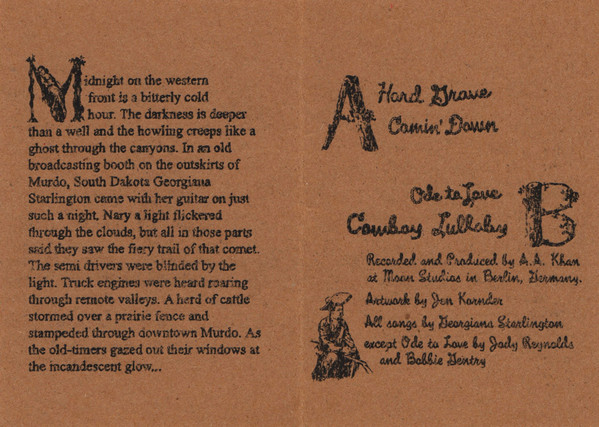 Midnight on the western
front is a bitterly cold
hour. The darkness is deeper
than a well and the howling creeps like a
ghost through the canyons. In an old
broadcasting booth on the outskirts of
Murdo, South Dakota Georgiana
Starlington came with her guitar on just
such a night. Nary a light flickered
through the clouds, but all in those parts
said they saw the fiery trail of that comet.
The semi drivers were blinded by the
light. Truck engines were heard roaring
through remote valleys. A herd of cattle
stormed over a prairie fence and
stampeded through downtown Murdo. As
the old-timers gazed out their windows at
the incandescent glow...
A Hard Grave
Comin' Down
Ode to Love B
Cowboy Lullaby
Recorded and Produced by A.A. Khan
at Moon Studios in Berlin, Germany.
Artwork by Jen Kornder
All songs by Georgiana Starlington
except Ode to Love by Jody Reynolds
and Bobbie Gentry